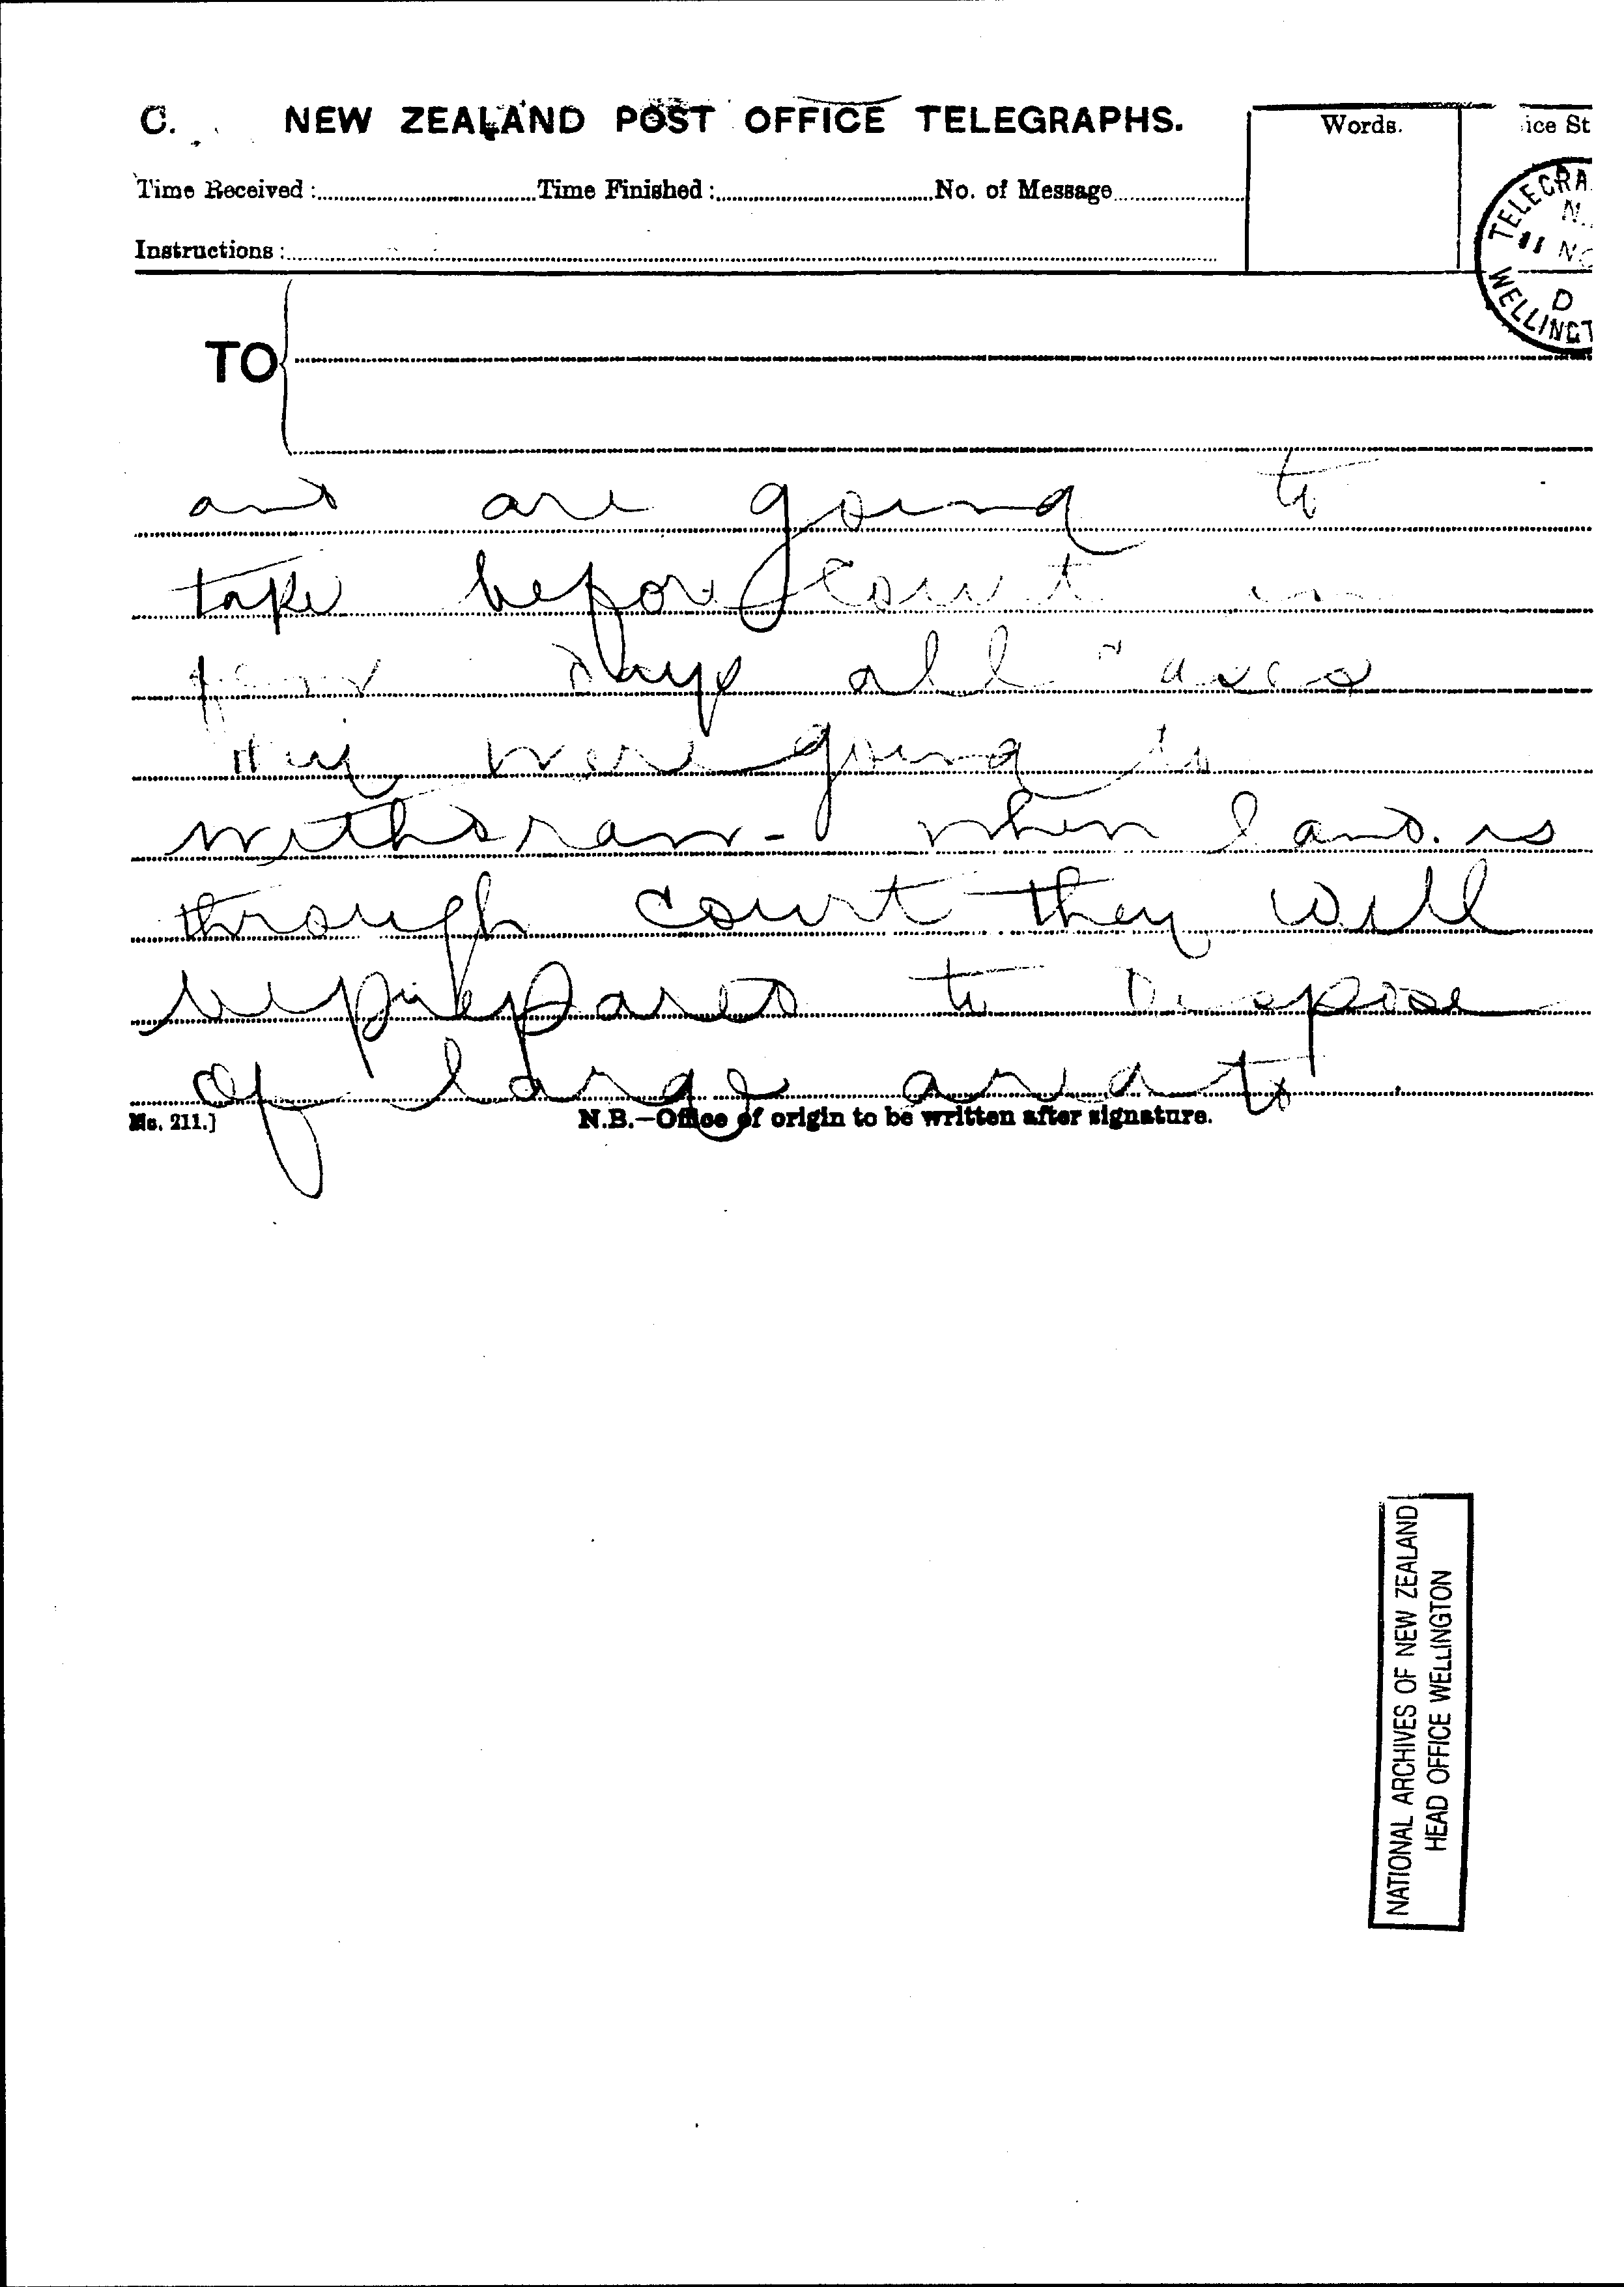 C. NEW ZEALAND POST OFFICE TELEGRAPHS. Words. ice St
Time Received: Time Finished: No. of Message
Instructions:
TELEGRA
N.
11 NO
D
WELLINGT
TO
and are going to
take before court in
few days all cases
they were going to
withdraw - when land is
through court they will
be prepared to dispose
of large area to
No. 211.]
N.B.—Office of origin to be written after signature.
NATIONAL ARCHIVES OF NEW ZEALAND
HEAD OFFICE WELLINGTON